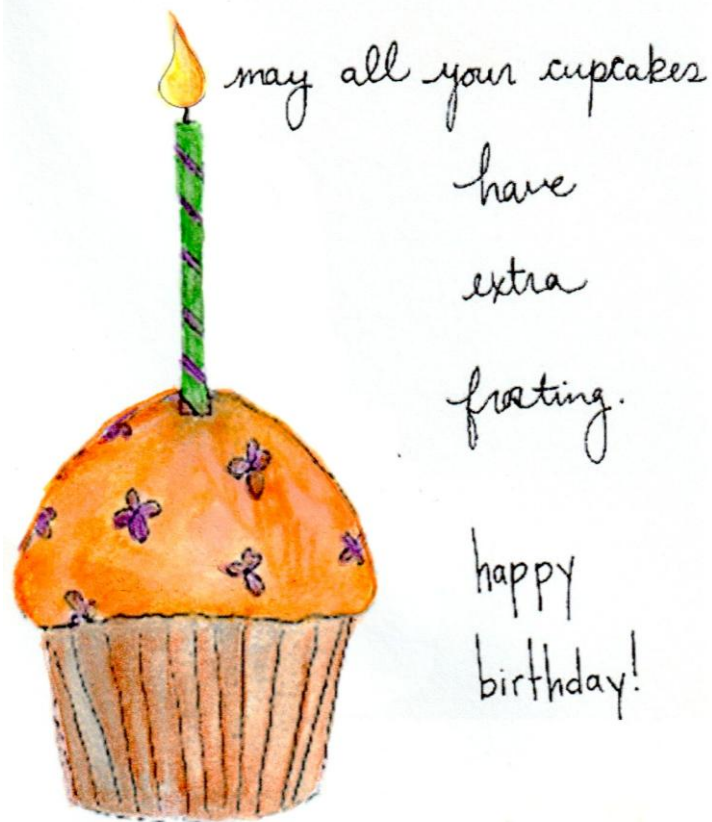 may all your cupcakes
have
extra
frosting.
happy
birthday!